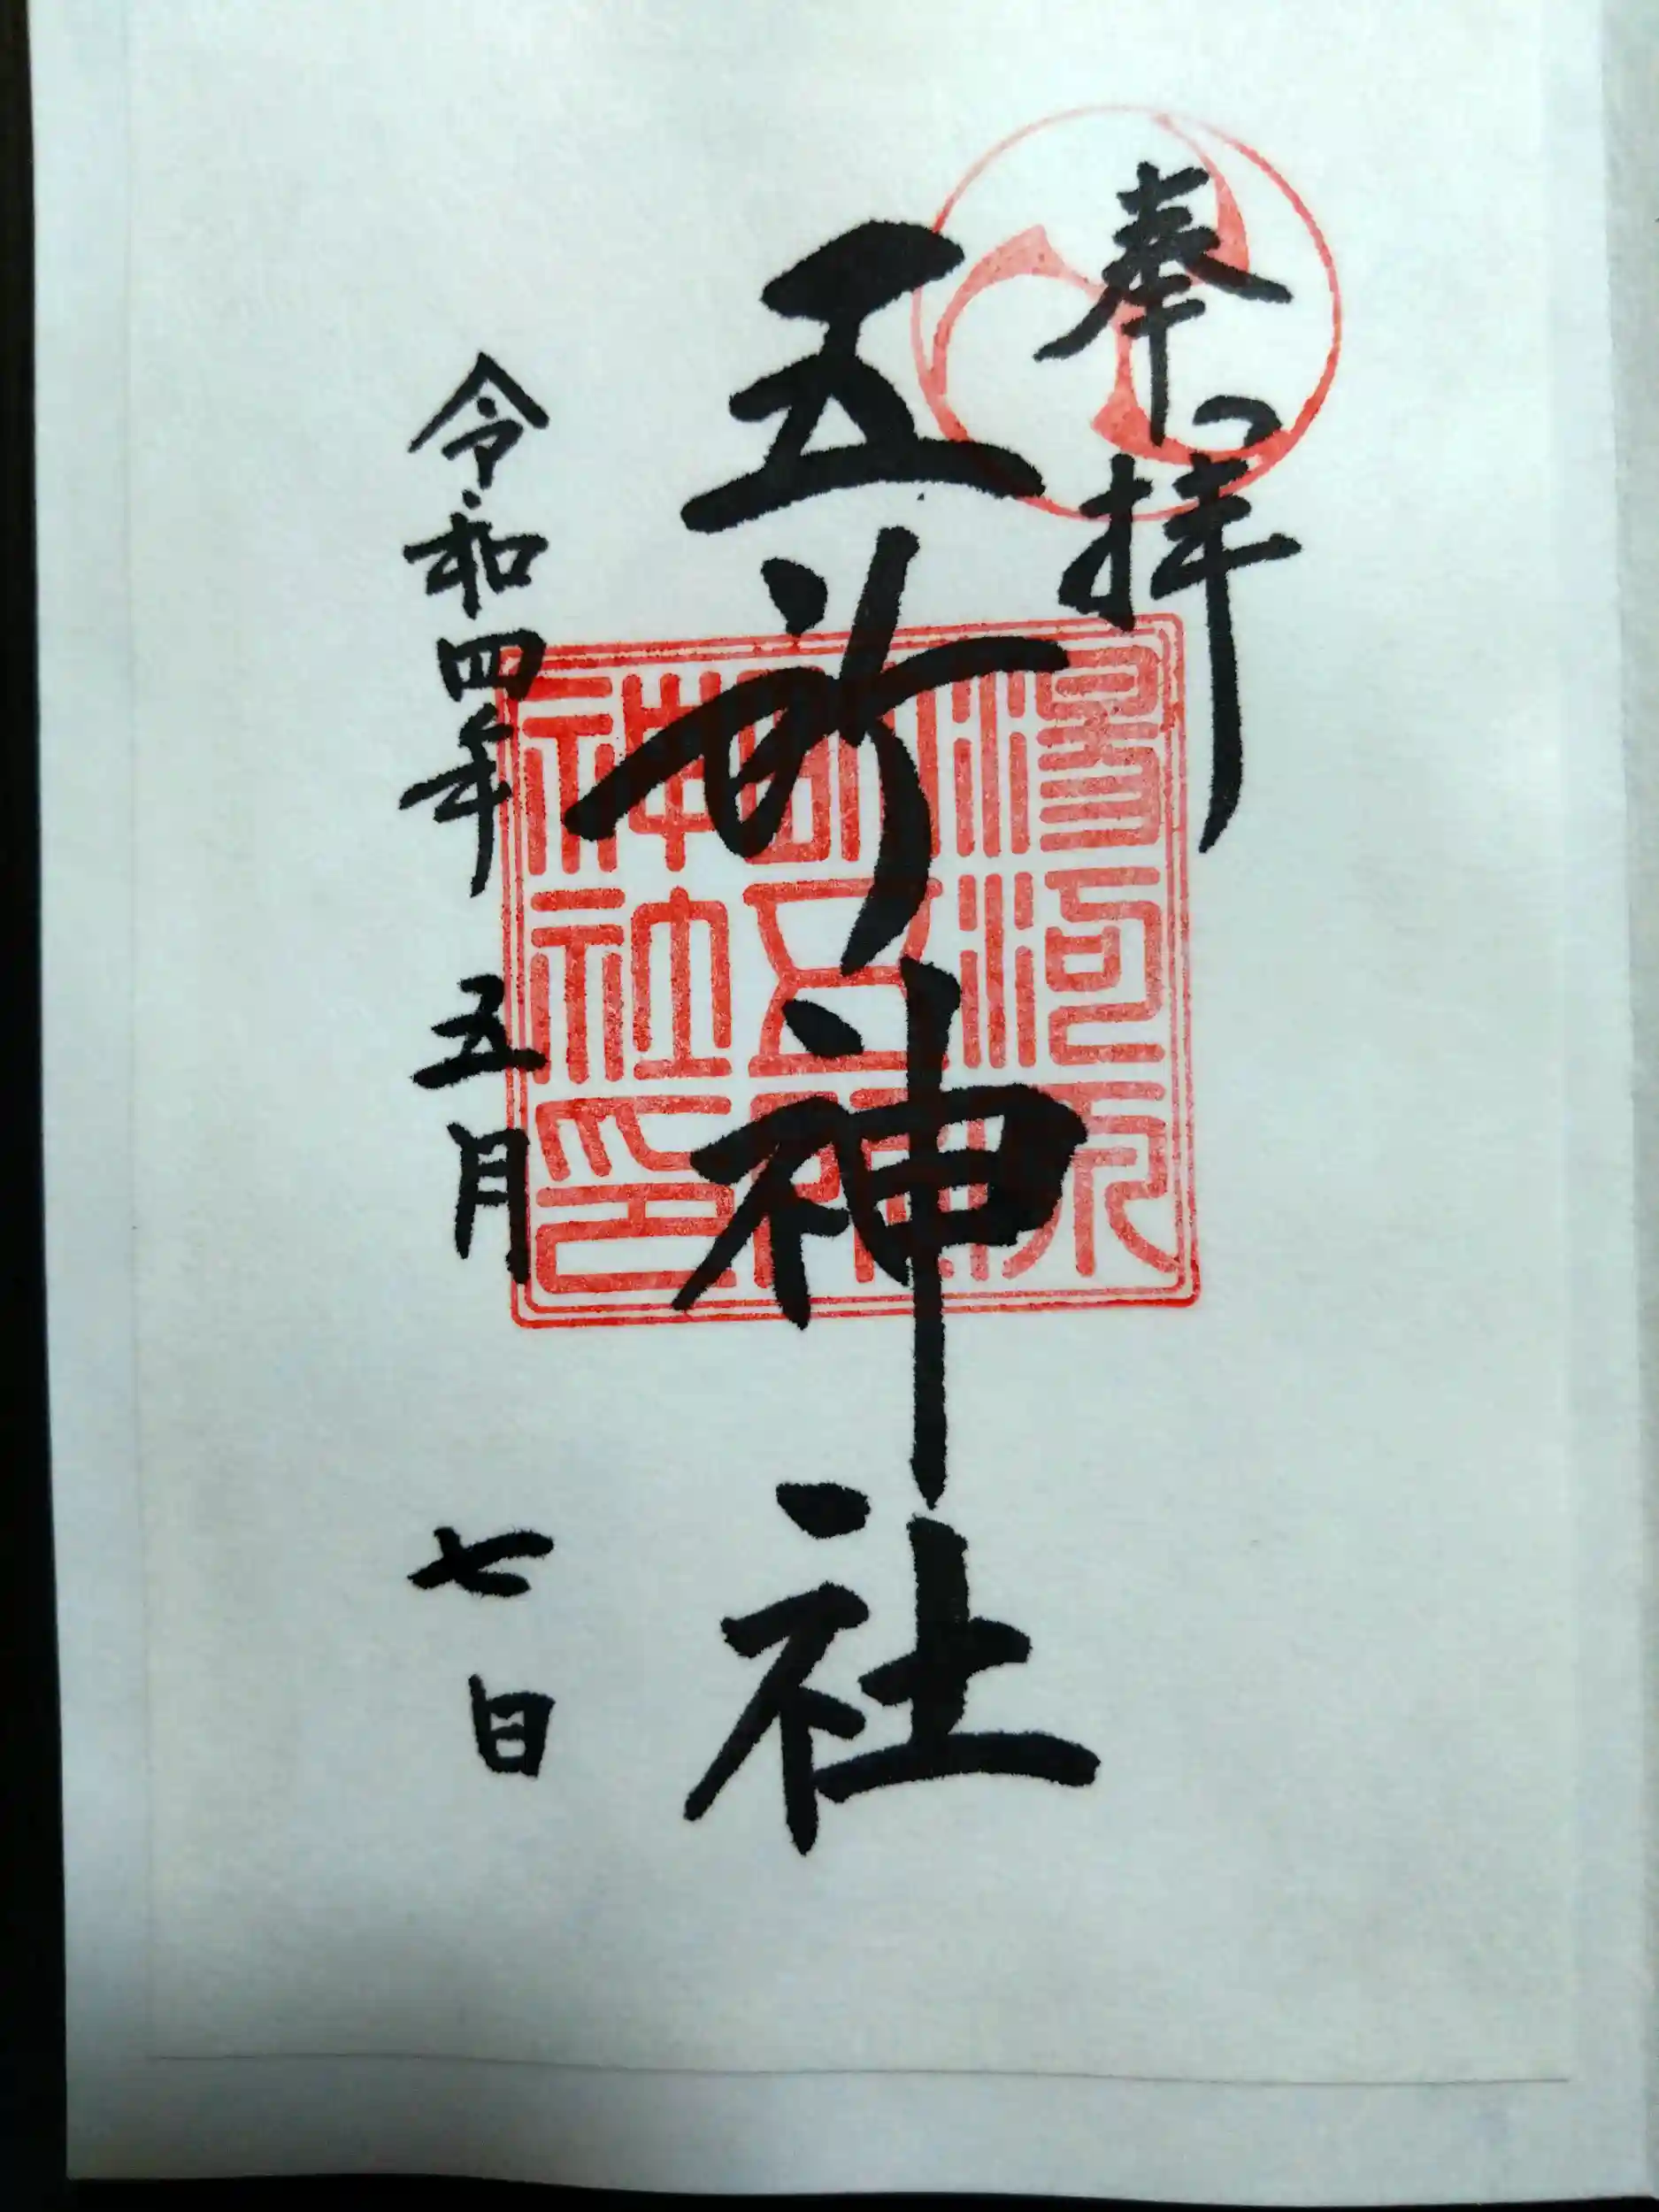 奉拝
五所神社
令和四年五月七日
湯河原
五所
神社印